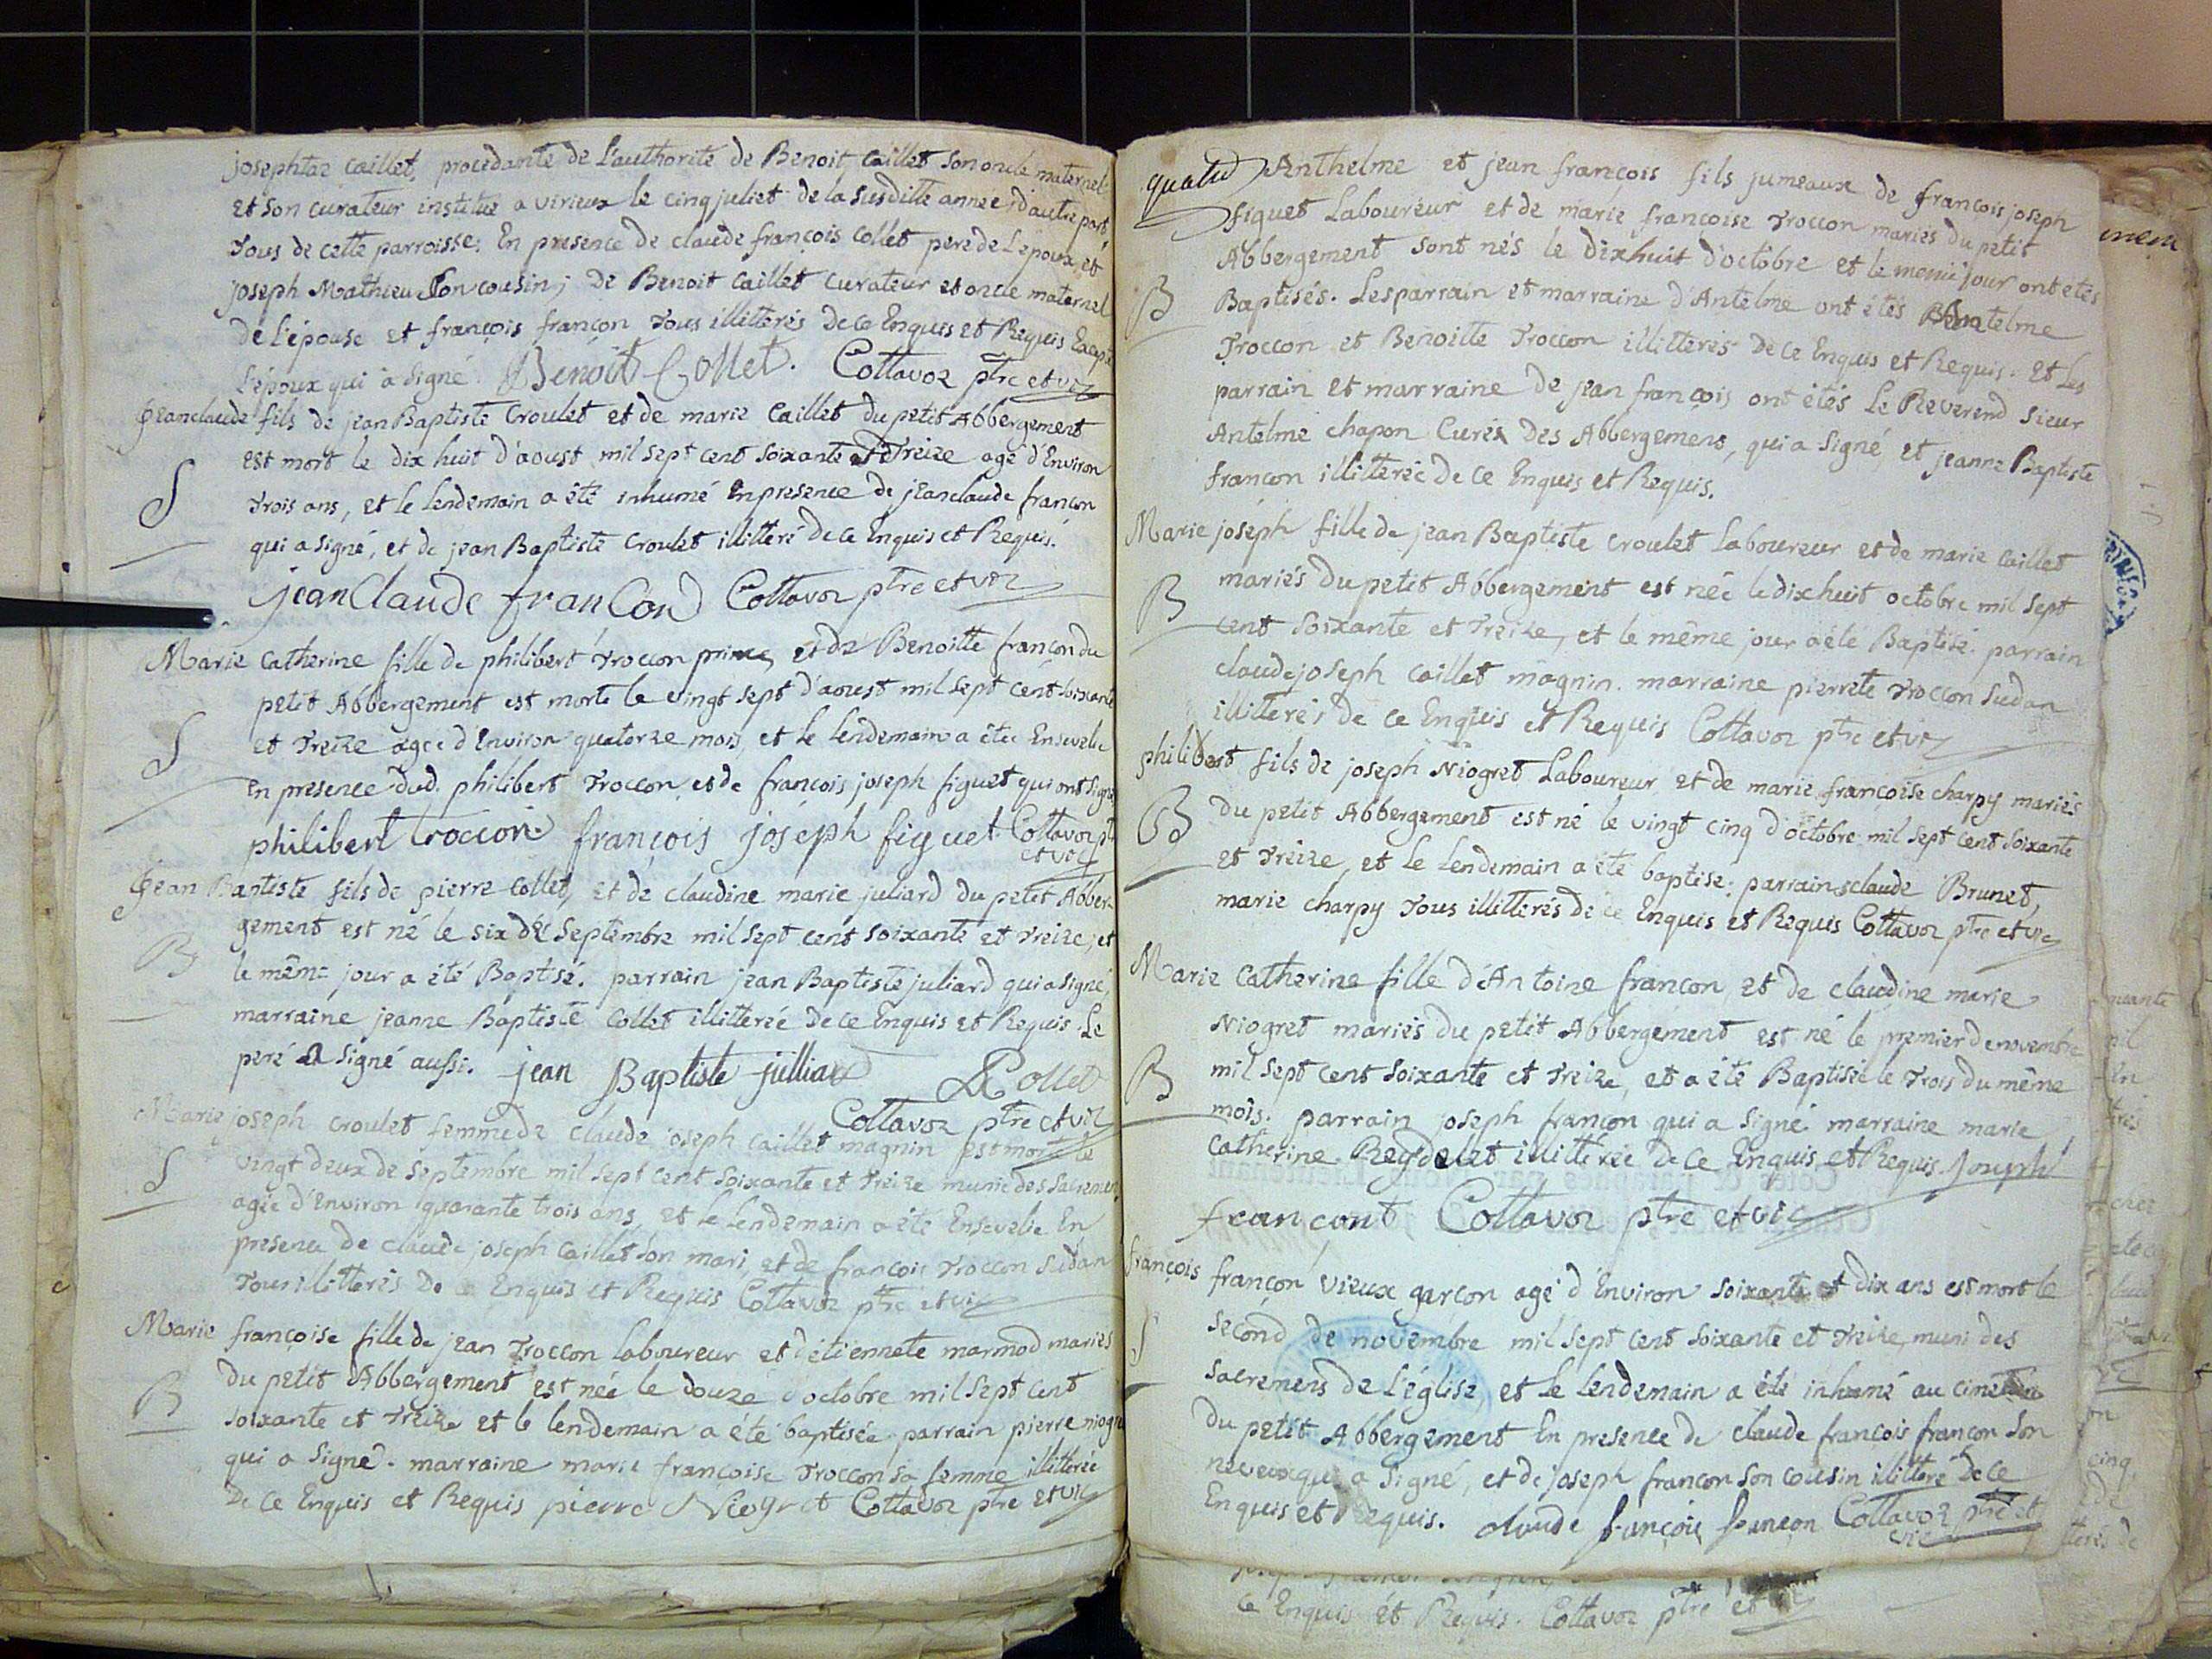 josephtae caillet, procedante de L'authorité de Benoit caillet son oncle maternel
et son curateur institué a virieux le cinq juliet de la susditte année; d'autre part,
tous de cette parroisse; En presence de claude françois collet pere de L'epoux, et
joseph Mathieu son cousin; de Benoit caillet curateur et oncle maternel
de L'épouse et françois françon tous illitterés de ce Enquis et Requis Excepté
L'époux qui a signé. Benoit Collet. Cottavoz ptre et vic
Jeanclaude fils de jean Baptiste Croulet et de marie Caillet du petit Abbergement
est mort le dix huit d'aoust mil sept cent soixante et treize agé d'Environ
S
trois ans, et le lendemain a été inhumé En presence de jeanclaude françon
qui a signé, et de jean Baptiste Croulet illitteré de ce Enquis et Requis.
jean Claude françon Cottavoz ptre et vic
Marie Catherine fille de philibert troccon prince, et de Benoitte françon du
petit Abbergement est morte le vingt sept d'aoust mil sept cent soixante
S
et treize agée d'Environ quatorze mois, et le lendemain a étée Ensevelie
En presence dud. philibert troccon, et de françois joseph figuet qui ont signé
philibert troccon françois joséph figuet Cottavoz ptre
et vic
Jean Baptiste fils de pierre Collet, et de claudine marie juliard du petit Abber-
gement est né le six de septembre mil sept cent soixante et treize, et
B
le même jour a été Baptisé. parrain jean Baptiste juliard qui a signé,
marraine jeanne Baptiste Collet illitterée de ce Enquis et Requis. Le
peré a signé aussi. jean Baptiste julliard Collet
Cottavoz ptre et vic
Marie joseph Croulet femme de claude joseph Caillet magnin est morte le
S
vingt deux de septembre mil sept cent soixante et treize munie des sacremens
agée d'Environ quarante trois ans, et le lendemain a été Ensevelie En
presence de claude joseph Caillet son mari, et de françois troccon sudan
tous illitterés de ce Enquis et Requis Cottavoz ptre et vic
Marie françoise fille de jean troccon laboureur et d'étiennete marmod mariés
du petit Abbergement est née le douze d'octobre mil sept cent
B
soixante et treize et le lendemain a été baptisée parrain pierre niogret
qui a signé. marraine marie françoise troccon sa femme illitterée
de ce Enquis et Requis pierre Niogret Cottavoz ptre et vic
Anthelme et jean françois fils jumeaux de françois joseph
figuet Laboureur et de marie françoise troccon mariés du petit
Abbergement sont nés le dixhuit d'octobre et le meme jour ont étés
B
Baptisés. Les parrain et marraine d'Antelme ont étés Antelme
troccon et Benoitte troccon illitterés de ce Enquis et Requis. Et les
parrain et marraine de jean françois ont étés Le Reverend sieur
Antelme chapon Curé des Abbergemens, qui a signé, et jeanne Baptiste
françon illitterée de ce Enquis et Requis.
Marie joséph fille de jean Baptiste croulet laboureur et de marie caillet
mariés du petit Abbergement est née le dixhuit octobre mil sept
B
cent soixante et treize, et le même jour a été Baptisé. parrain
claude joseph caillet magnin. marraine pierrete troccon sudan
illitterés de ce Enquis et Requis Cottavoz ptre et vic
philibert fils de joseph Niogret laboureur et de marie françoise charpy mariés
B
du petit Abbergement est né le vingt cinq d'octobre mil sept cent soixante
et treize, et le lendemain a été baptisé: parrain claude Brunet,
marie charpy tous illitterés de ce Enquis et Requis Cottavoz ptre et vic
Marie Catherine fille d'Antoine françon, et de claudine marie
Niogret mariés du petit Abbergement est né le premier de novembre
B
mil sept cent soixante et treize, et a été Baptisée le trois du même
mois. parrain joseph françon qui a signé. marraine marie
Catherine Reydelet illitterée de ce Enquis et Requis. joseph
francont Cottavoz ptre et vic
françois françon vieux garcon agé d'Environ soixante et dix ans est mort le
S
second de novembre mil sept cent soixante et treize, muni des
sacremens de l'église, et le lendemain a été inhumé au cimetiere
du petit Abbergement En presence de claude françois françon son
neveux qui a signé, et de joseph françon son cousin illitteré de ce
Enquis et Requis. claude françois françon Cottavoz ptre et
vic
ce Enquis et Requis. Cottavoz ptre et